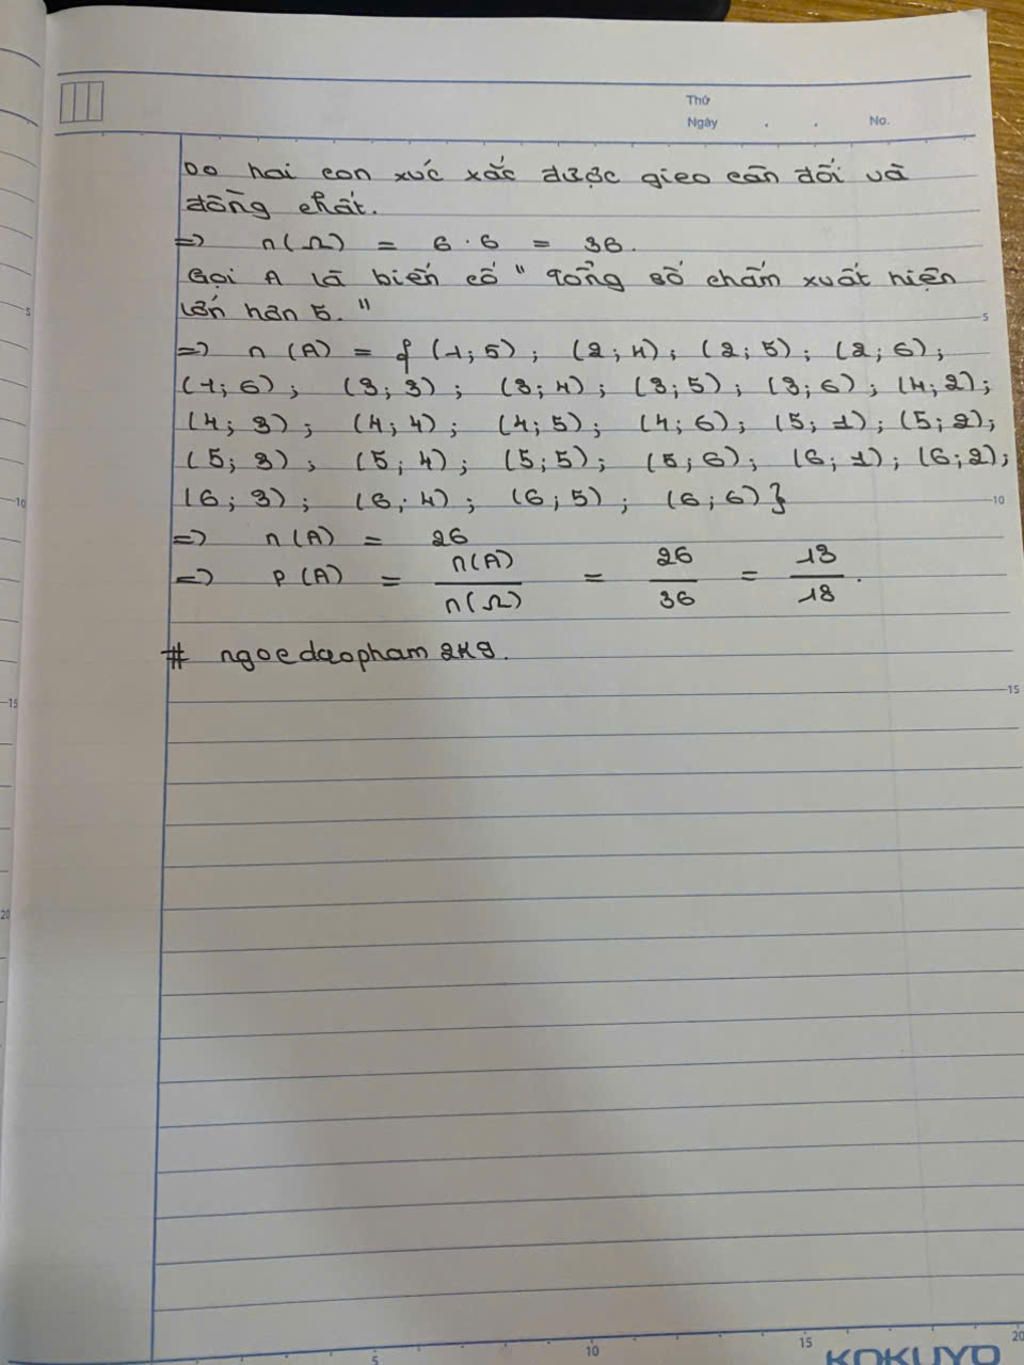 Thứ
Ngày . . No.
Do hai con xúc xắc được gieo cân đối và
đồng chất.
=> n(Ω) = 6 . 6 = 36.
Gọi A là biến cố "Tổng số chấm xuất hiện
lớn hơn 5."
=> n(A) = { (1; 5); (2; 4); (2; 5); (2; 6);
(1; 6); (3; 3); (3; 4); (3; 5); (3; 6); (4; 2);
(4; 3); (4; 4); (4; 5); (4; 6); (5; 1); (5; 2);
(5; 3); (5; 4); (5; 5); (5; 6); (6; 1); (6; 2);
(6; 3); (6; 4); (6; 5); (6; 6) }
=> n(A) = 26
=> P(A) = n(A)/n(Ω) = 26/36 = 13/18.
# ngocdaopham2k9.
5
10
15
5 10 15 20
KOKUYO